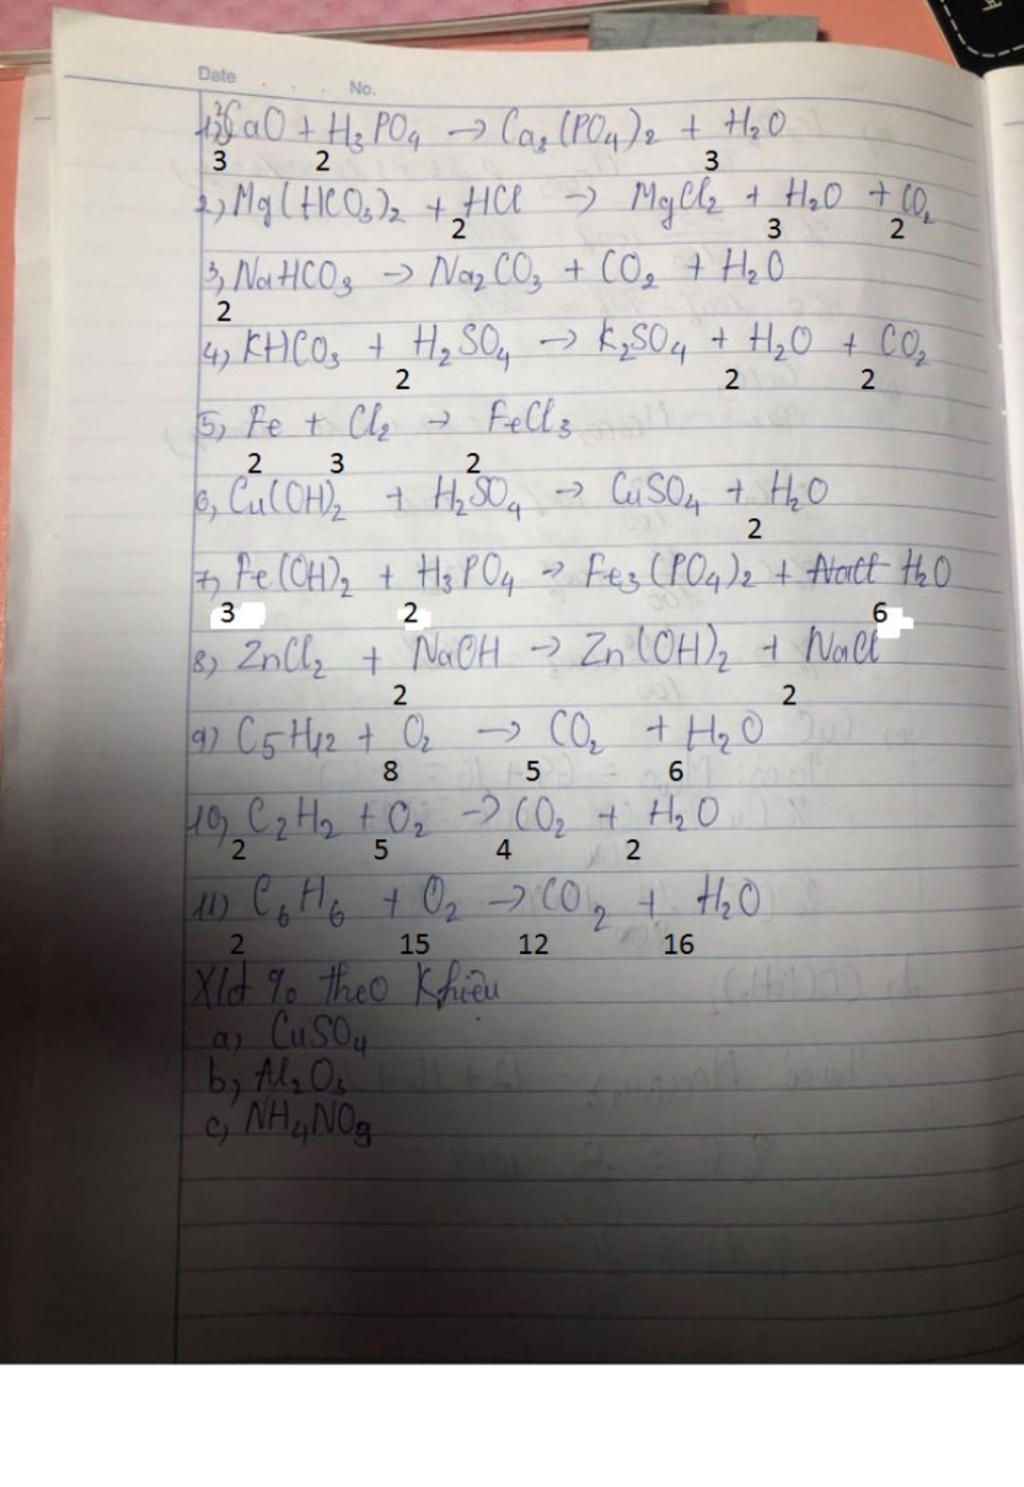 Date No.
1, 3CaO + H3PO4 → Ca3(PO4)2 + H2O
3 2 3
2, Mg(HCO3)2 + HCl → MgCl2 + H2O + CO2
2 3 2
3, NaHCO3 → Na2CO3 + CO2 + H2O
2
4, KHCO3 + H2SO4 → K2SO4 + H2O + CO2
2 2 2
5, Fe + Cl2 → FeCl3
2 3 2
6, Cu(OH)2 + H2SO4 → CuSO4 + H2O
2
7, Fe(OH)2 + H3PO4 → Fe3(PO4)2 + NaCl H2O
3 2 6
8, ZnCl2 + NaOH → Zn(OH)2 + NaCl
2 2
9) C5H12 + O2 → CO2 + H2O
8 5 6
10, C2H2 + O2 → CO2 + H2O
2 5 4 2
11) C6H6 + O2 → CO2 + H2O
2 15 12 16
% theo Khiệu
a, CuSO4
b, Al2O3
c, NH4NO3